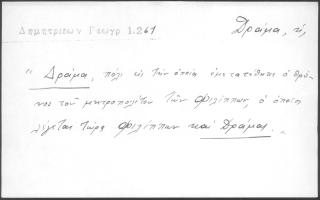 Δημητριεων Γεωγρ 1.261
Δράμα, ἡ,
"Δράμα, πόλι εἰς τὴν ὁποία ἐμετατέθηκε ὁ θρό-
νος τοῦ μητροπολίτου τῶν Φιλίππων, ὁ ὁποῖος
λέγεται τώρα Φιλίππων καὶ Δράμας.„